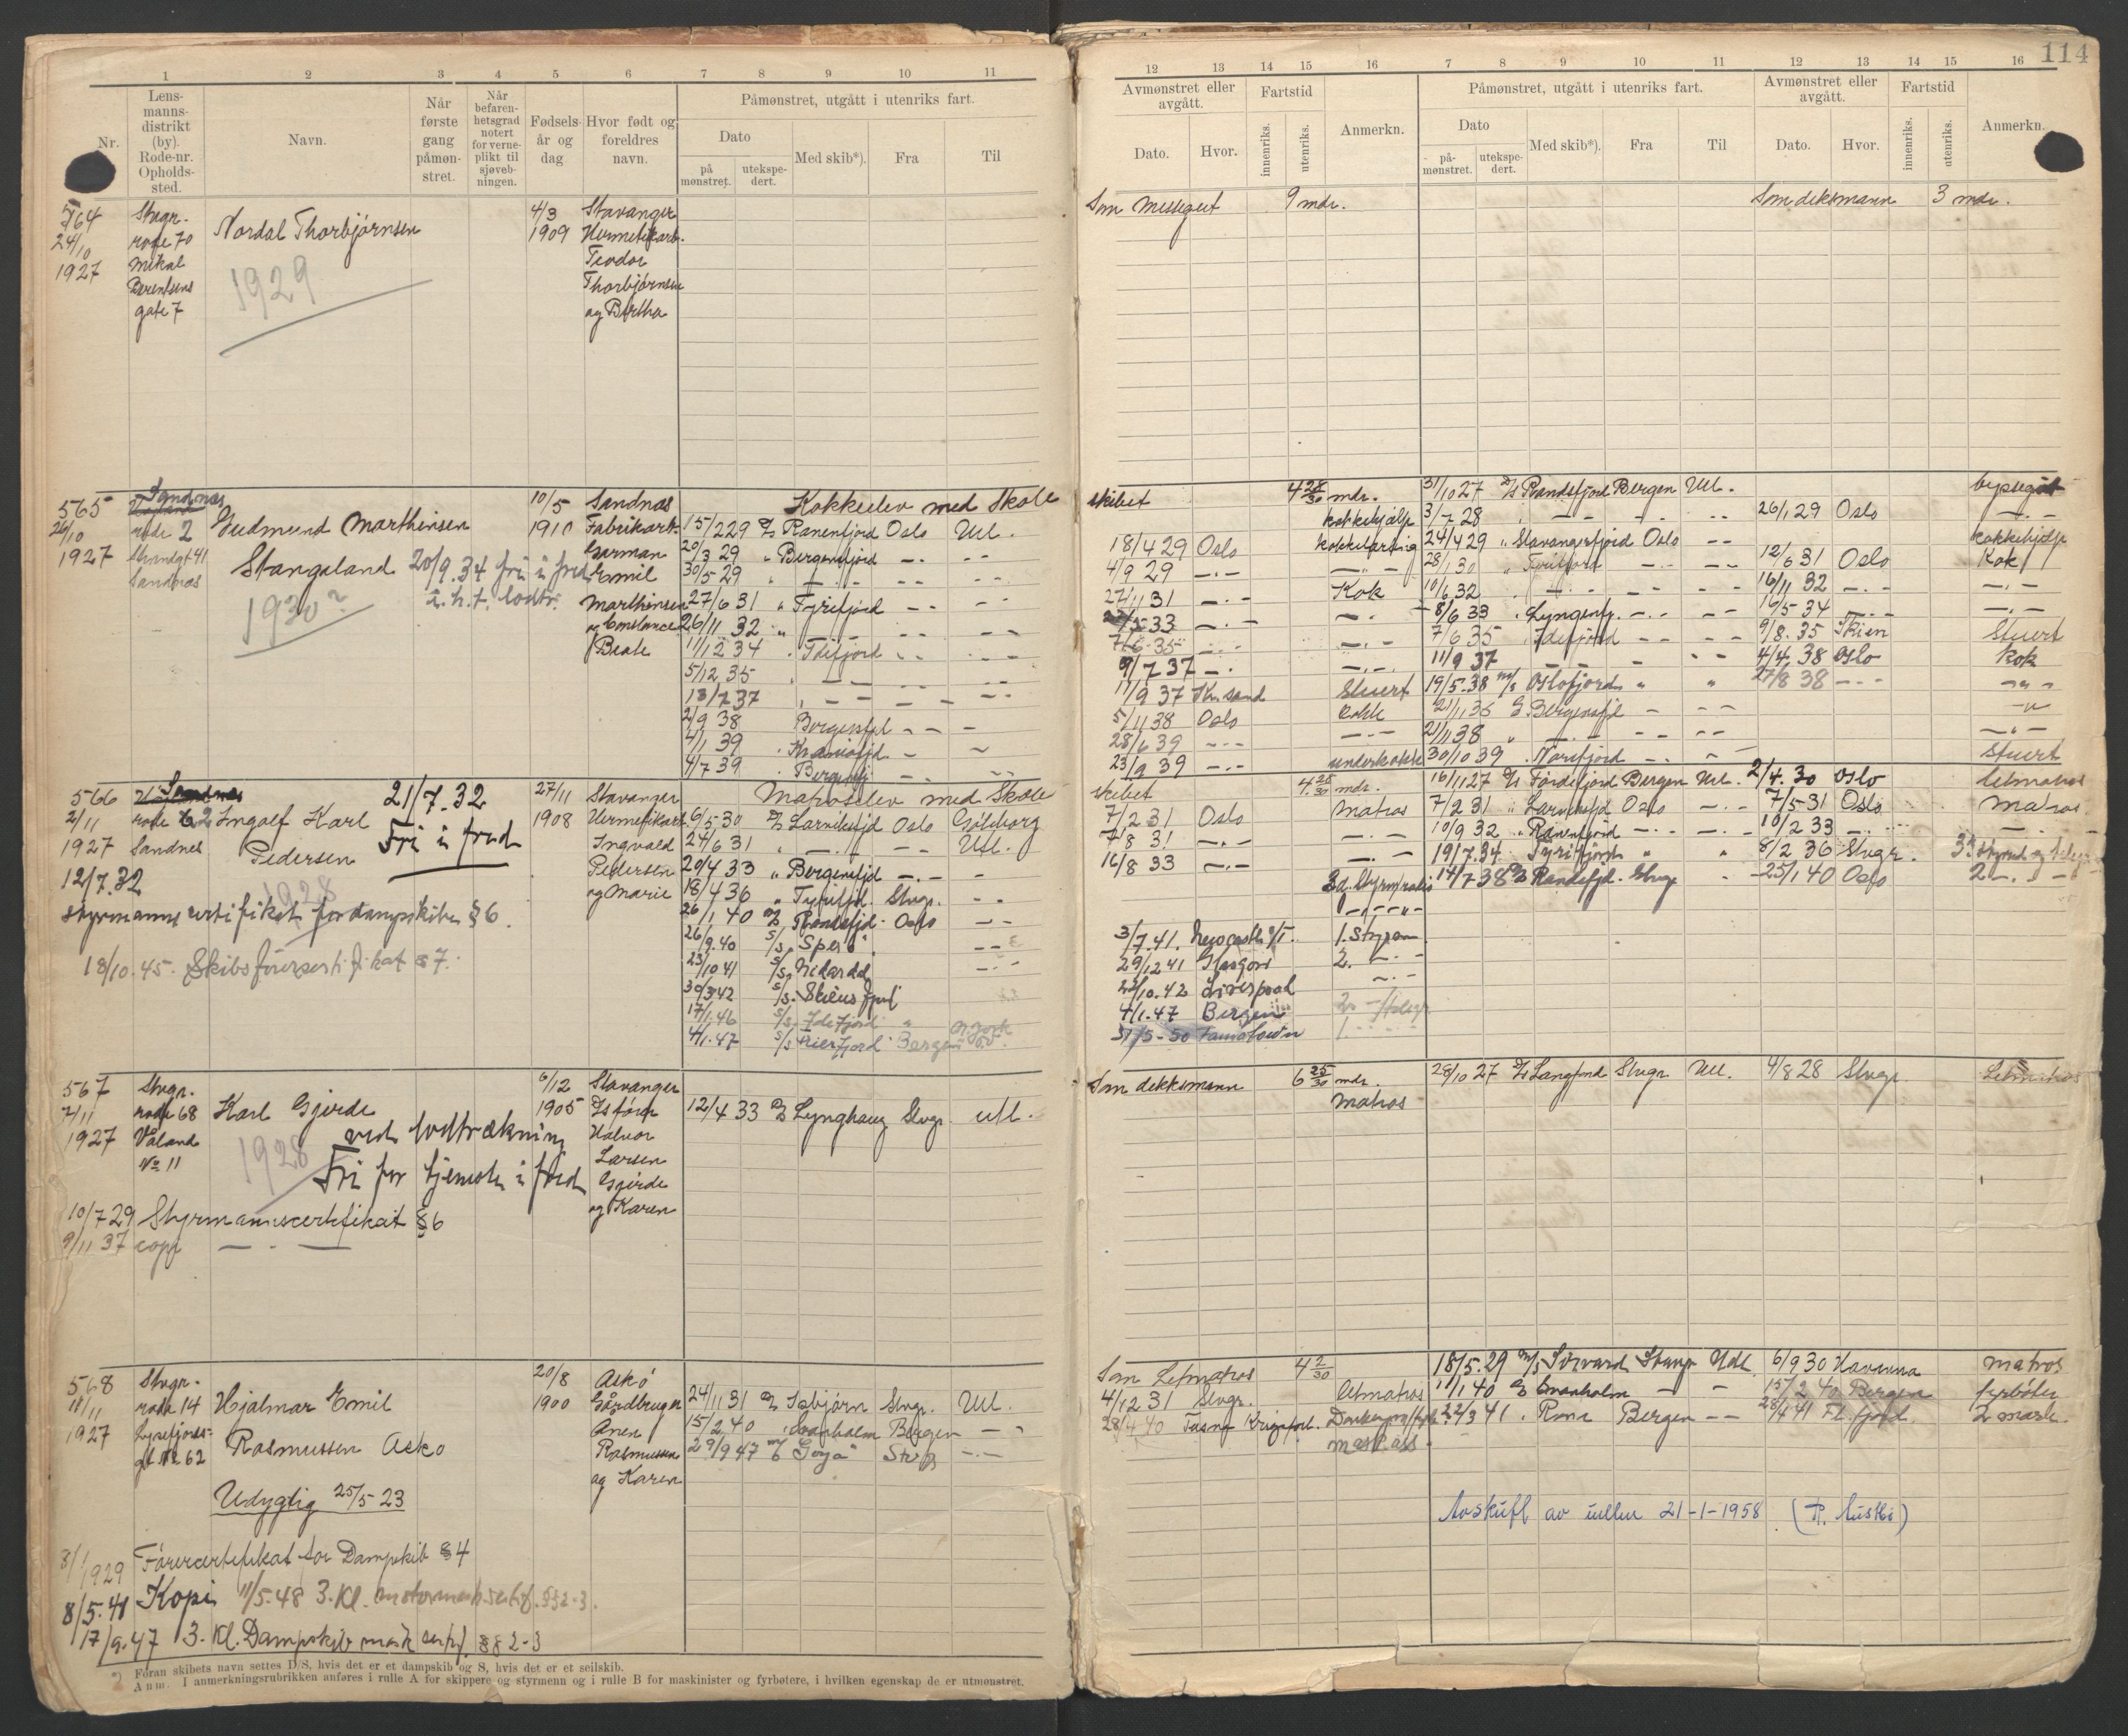 114
1 2 3 4 5 6 7 8 9 10 11
Nr.
Lens-
manns-
distrikt
(by).
Rode-nr.
Opholds-
sted.
Navn.
Når
første
gang
påmøn-
stret.
Når
befaren-
hetsgrad
notert
for verne-
plikt til
sjøveb-
ningen.
Fødsels-
år og
dag
Hvor født og
foreldres
navn.
Påmønstret, utgått i utenriks fart.
Dato
på
mønstret.
utekspe-
dert.
Med skib*).
Fra
Til
12 13 14 15 16 7 8 9 10 11 12 13 14 15 16
Avmønstret eller
avgått.
Dato.
Hvor.
Fartstid
innenriks.
utenriks.
Anmerkn.
Påmønstret, utgått i utenriks fart.
Dato
på-
mønstret.
utekspe-
dert.
Med skib*).
Fra
Til
Avmønstret eller
avgått.
Dato.
Hvor.
Fartstid
innenriks.
utenriks.
Anmerkn.
564
24/10
1927
Stvgr.
rode 70
Mikal
Berentsens
gate 7
Nordal Thorbjørnsen
1929
4/3
1909
Stavanger
Hermetikarb.
Teodor
Thorbjørnsen
og Bertha
Som Messegut 9 mdr.
Som dekksmann 3 mdr.
565
26/10
1927
Sandnes
rode 2
Strandgt 41
Sandnæs
Gudmund Marthinsen
Stangeland
20/9.34 fri i fred
e.h.t. lodtr.
1930
10/5
1910
Sandnæs
Fabrikarb.
Garman
Emil
Marthinsen
og Constance
Beate
Kokkelev med Skole
skibet 4 28/30 mdr.
15/2 29 D/S Ranenfjord Oslo Utl.
20/3 29 " Bergensfjord - - - -
30/5 29 " - - - - - -
27/6 31 " Tyrifjord - - - -
26/11 32 " - - - - - -
11/12 34 " Idefjord - - - -
5/12 35 " - - - -
13/7 37 - - - - - -
2/9 38 Bergensfjd - - -
4/1 39 - -
4/7 39 Bergensfj - - - -
18/4 29 Oslo
4/9 29 - - -
27/11 31 - - - Kok
7/6 35 - - -
9/7 37 - - - - -
11/9 37 Kr.sand Stuert
5/11 38 Oslo kokk
28/6 39 - - - - - -
23/9 39 - - - underkokk
31/10 27 D/S Randsfjord Bergen Utl.
3/7 28 - - - - - 26/1 29 Oslo - - -
24/4 29 " Stavangerfjord Oslo - - kokkehjelp
28/1 30 - - - - 12/6 31 Oslo Kok
10/6 32 - - - - - - 16/11 32 - - - - - -
8/6 33 " Lyngenfj. - - - - 16/5 34 - - - - -
7/6 35 Idefjord - - - - 9/8.35 Skien Stuert
11/9 37 - - - - - 4/4.38 Oslo kok
19/5.38 M/S Oslofjord " " 27/8 38 - - - - - -
Bergensfjd - - -
21/1 38 " - - - - - -
30/10 39 . Norefjord - - Stuert
566
2/11
1927
Sandnæs
rode 2
Sandnes
Ingolf Karl
Pedersen
21/7.32
Fri i fred
1928
12/7.32
styrmannscertifikat for dampskibe § 6.
18/10.45. Skibsførercertifikat § 7.
27/11
1908
Stavanger
Hermetikarb.
Ingvald
Pedersen
og Marie
Matroselev med Skole
skibet 4 25/30 mdr.
6/5 30 D/S Larviksfjd Oslo Göteborg
24/6 31 " - - - - - Utl.
20/4 33 " Bergensfjd - - -
18/4 36 " Tyrifjd. Stvgr. - -
26/1 40 D/S Randsfjd. Oslo - -
26/9.40 S/S "Spero" - -
23/10 41 S/S Nidardal - -
30/3 42 S/S. Skiensfjord
17/1.46 S/S Idefjord " N.York
4/1.47 S/S Frierfjord Bergen
7/2 31 Oslo Matros
7/8 31 - - - - - -
16/8 33 - - - - - -
3/7.41. Newcastle 1. Styrm
29/12 41 Glasgow 2. - - -
Liverpool - - -
4/1.47 Bergen
31/5-50 Jamestown 1.
16/11 27 D/S Fordefjord Bergen Utl. 2/4.30 Oslo letmatros
7/2 31 " Larviksfjd Oslo - - - 7/5-31 Oslo matros
10/9 32 " Ranenfjord - - - - - 10/2 33 - - -
19/7.34 Tyrifjord " " 8/2 36 Stvgr.
14/7 38 D/S Randsfjd. Stvgr 25/1 40 Oslo 2 - - -
567
2/11
1927
Stvgr.
rode 68
Våland
No 11
Karl Gjerde
ved lodtrækning
Fri for tjeneste i fred
1928
10/7 29 Styrmannscertifikat § 6
9/11 37 copi - - -
6/12
1905
Stavanger
Halvor
Larsen
Gjerde
og Karen
12/4 33 D/S Lynghaug Stvgr. utl.
Som dekksmann 6 25/30 mdr.
Matros
28/10 27 D/S Langfond Stvgr Utl. 4/8 28 Stvgr. Letmatros
568
11/11
1927
Stvgr.
rode 14
Lysefjords-
gt No 62
Hjalmar Emil
Rasmussen Askø
Udygtig 25/5 23
20/8
1900
Askø
Gårdbruger
Anen
Rasmussen
og Karen
24/11 31 D/S Isbjørn Stvgr. Utl.
15/2 40 " Svanholm Bergen - -
29/9 47 M/S "Goya" Stvgr - - -
Som Letmatros 4 2/30
4/12 31 Stvgr. letmatros
28/4 40
mask.ass
18/5.29 M/S Sørvard Stavgr Utl. 6/9 30 Havanna matros
11/1 40 D/S Svanholm - - 15/2 40 Bergen fyrbøter
22/3 41 . Rona Bergen - - 28/4 41 Fl. fjord. 2 mask.
Avskrift av rullen 21-1-1958
3/1 1929 Førercertifikat for Dampskib § 4
8/5.41 Kopi 11/5.48 3.Kl. motormask.sertif. §§ 2-3.
17/9.47 3. Kl. Dampskib mask sertf. §§ 2-3
*) Foran skibets navn settes D/S, hvis det er et dampskib og S, hvis det er et seilskib.
Anm. I anmerkningsrubrikken anføres i rulle A for skippere og styrmenn og i rulle B for maskinister og fyrbøtere, i hvilken egenskap de er utmønstret.